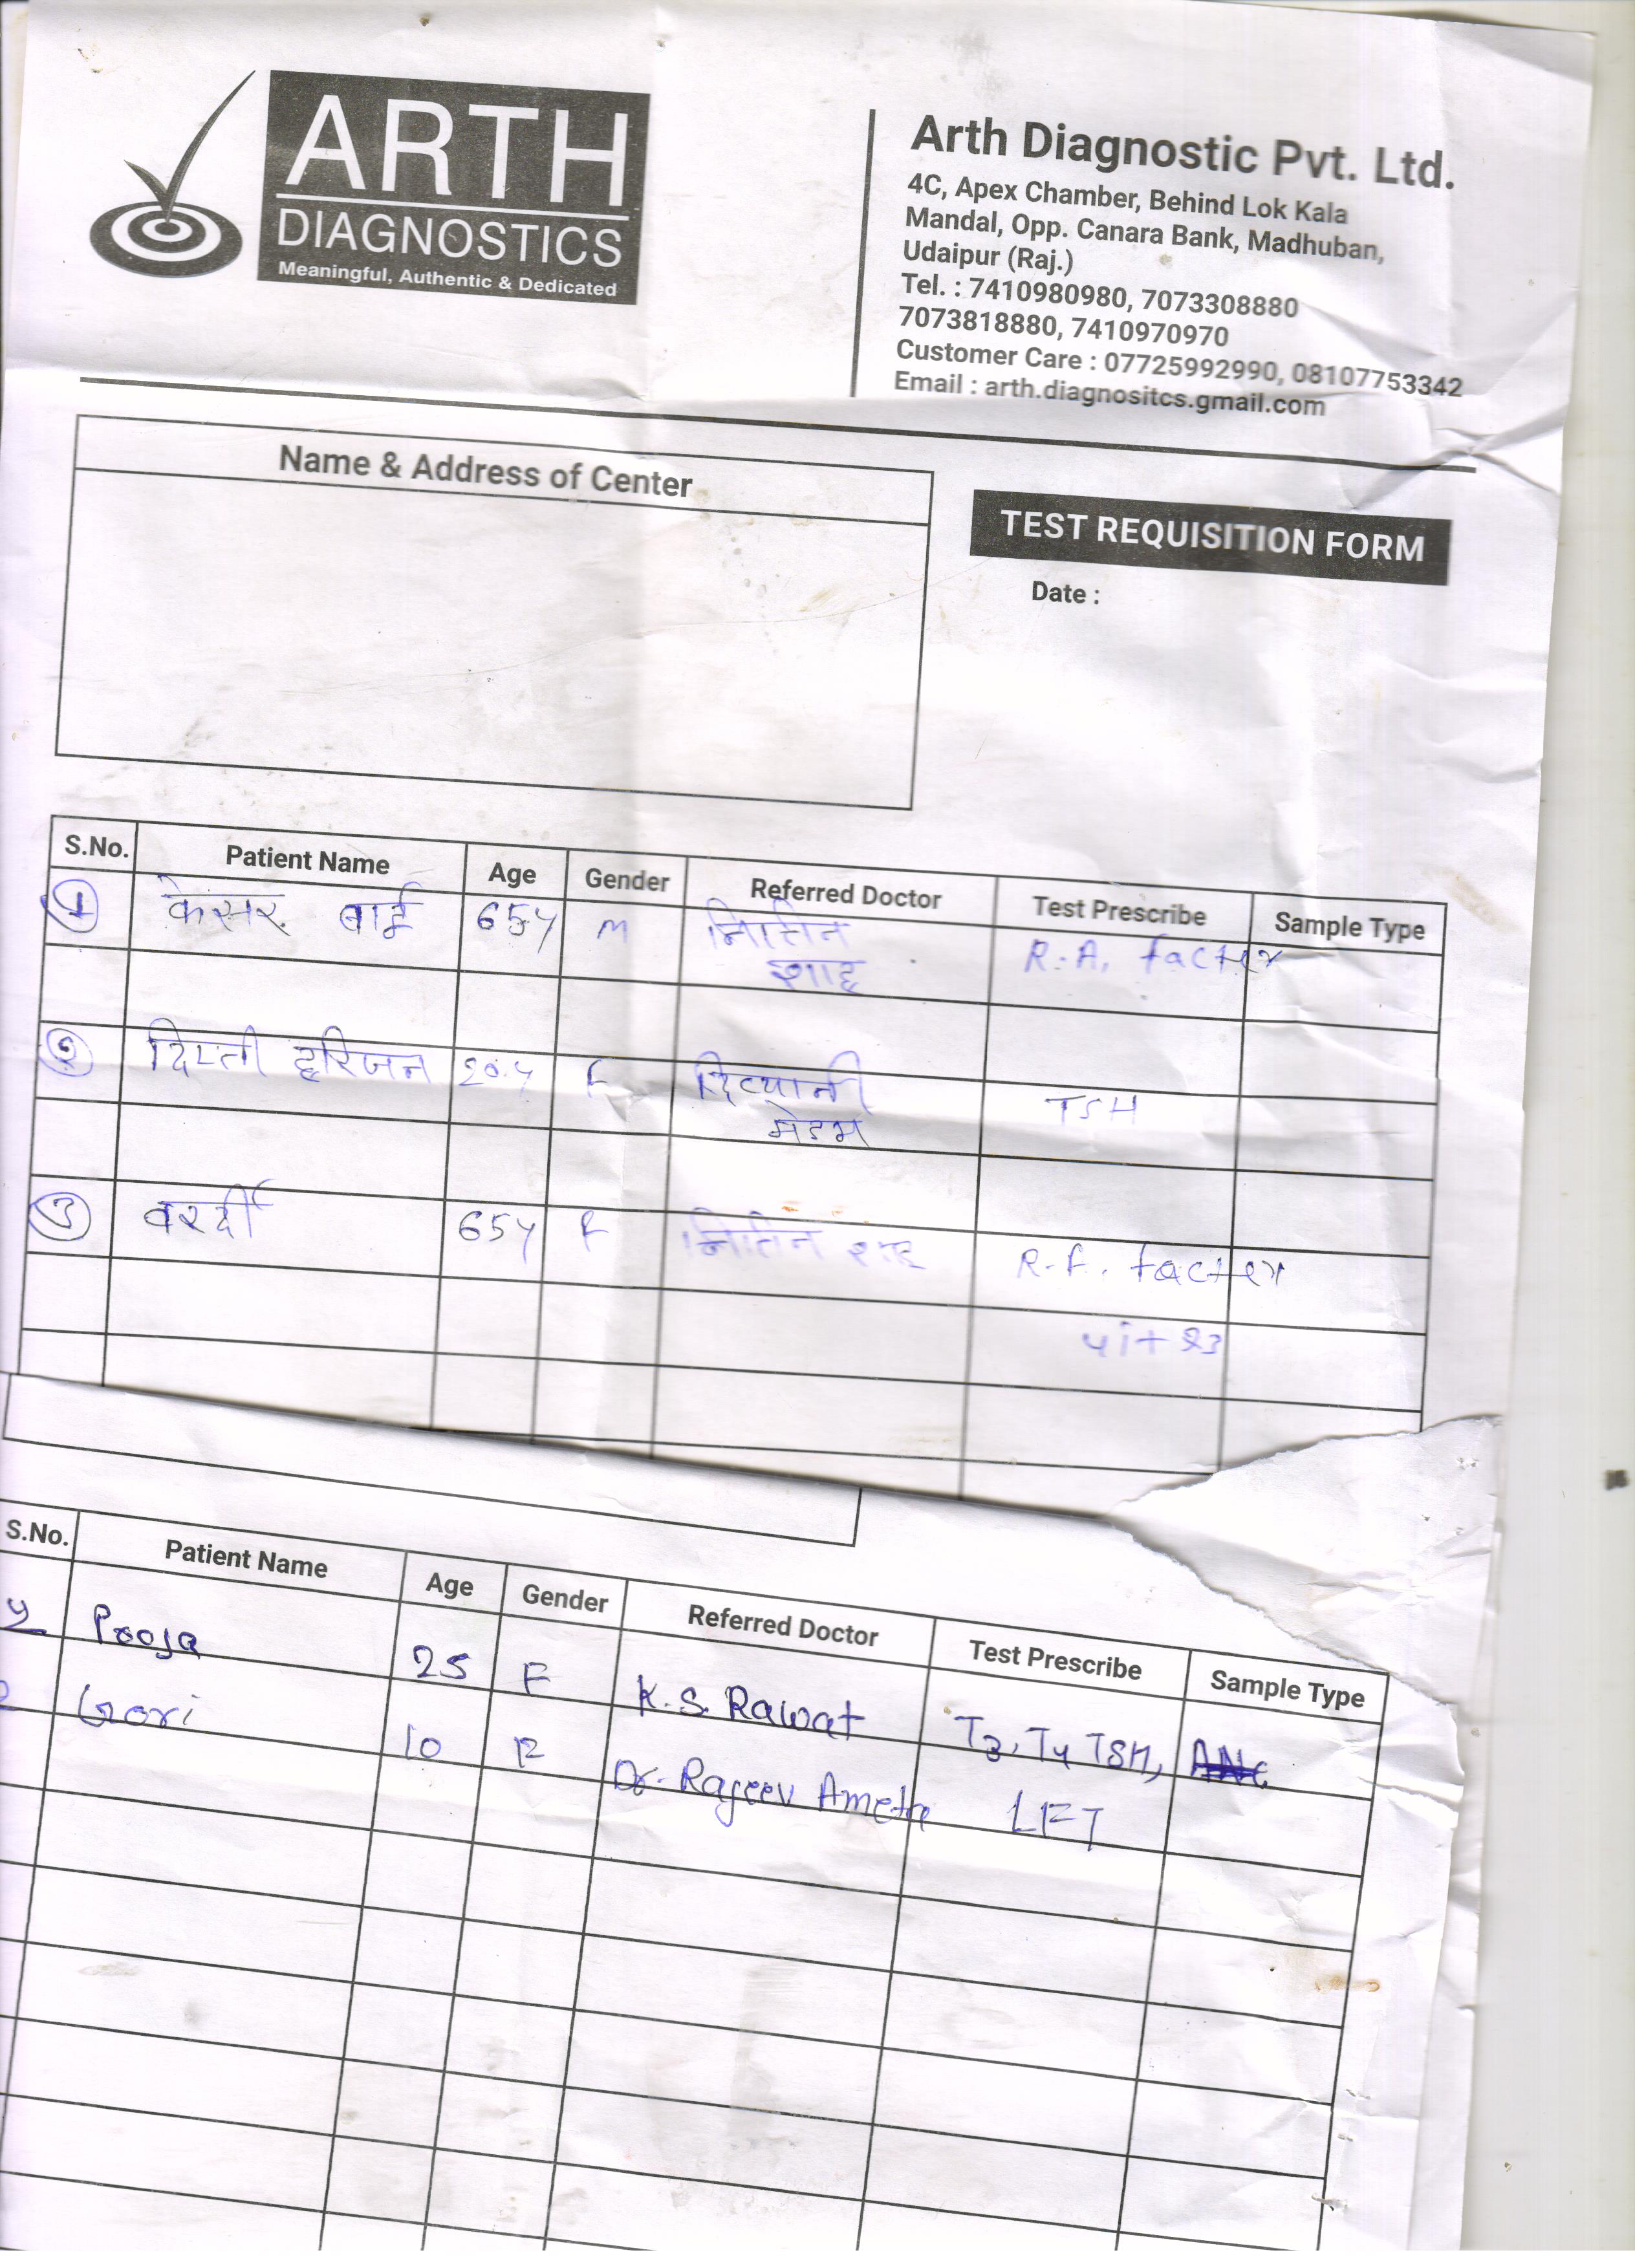 ARTH
DIAGNOSTICS
Meaningful, Authentic & Dedicated
Arth Diagnostic Pvt. Ltd.
4C, Apex Chamber, Behind Lok Kala
Mandal, Opp. Canara Bank, Madhuban,
Udaipur (Raj.)
Tel. : 7410980980, 7073308880
7073818880, 7410970970
Customer Care : 07725992990, 08107753342
Email : arth.diagnositcs.gmail.com
Name & Address of Center
TEST REQUISITION FORM
Date :
S.No. Patient Name Age Gender Referred Doctor Test Prescribe Sample Type
1 केसर बाई 65y M नितिन R.A. facter
शाह
२ दिप्ती हरिजन 20.y F दिव्यानी TSH
मेडम
3 वरदी 65y F नितिन शाह R.F. facter
vit
S.No. Patient Name Age Gender Referred Doctor Test Prescribe Sample Type
Pooja 25 F K.S. Rawat T3, T4 TSH,
Gori 10 F Dr. Rajeev Ameta LFT